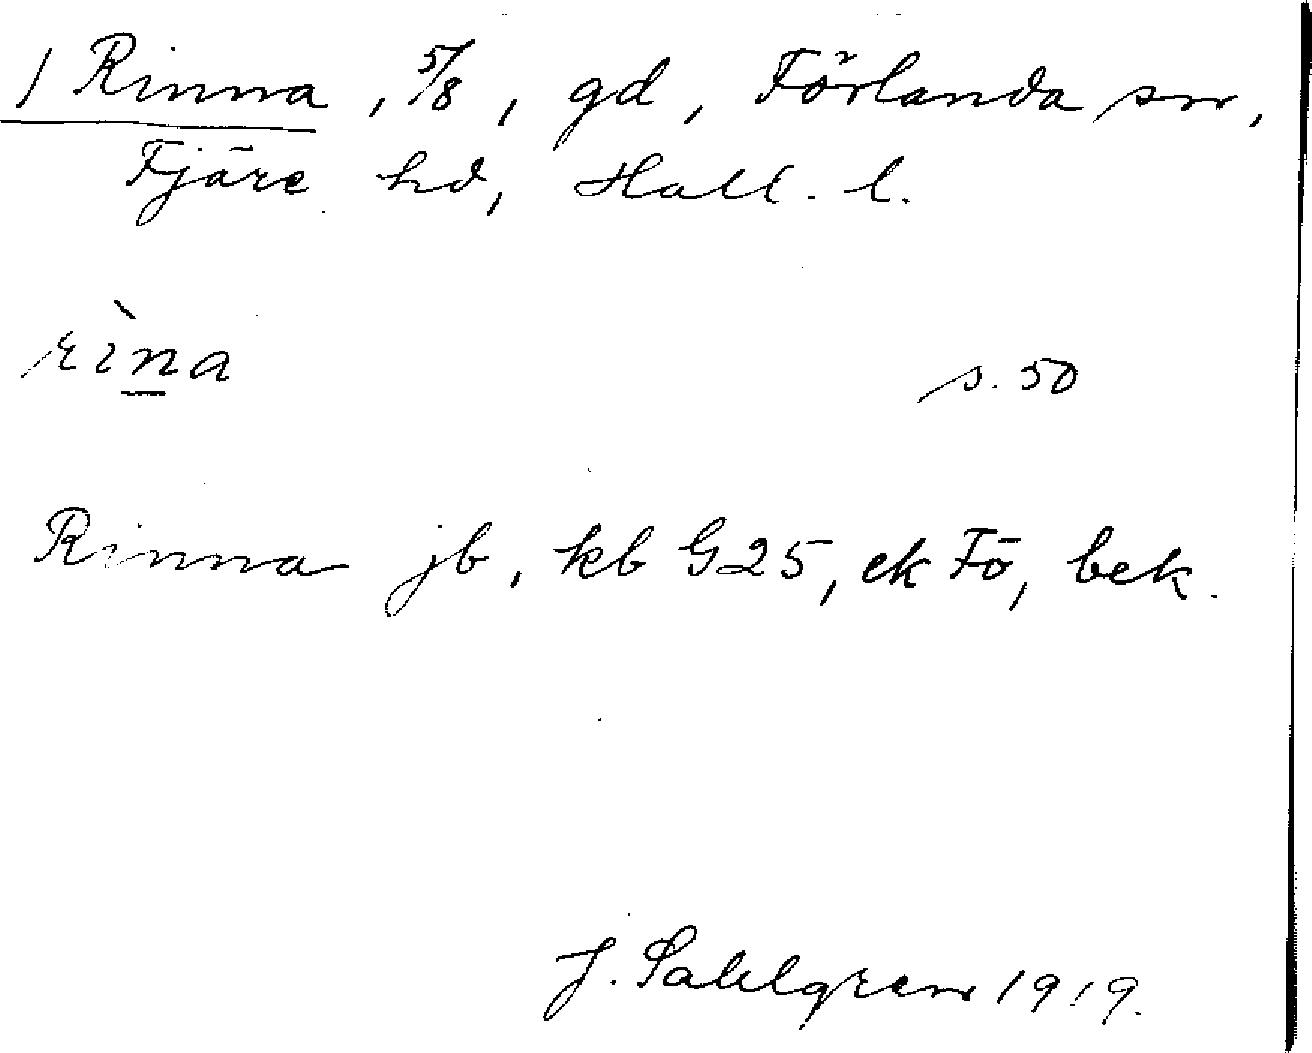 1 Rinna, 5/8, gd, Förlanda sn,
Fjäre hd, Hall. l.
rìna s. 50
Rinna jb, kb G25, ek Fö, bek.
J. Sahlgren 1919.